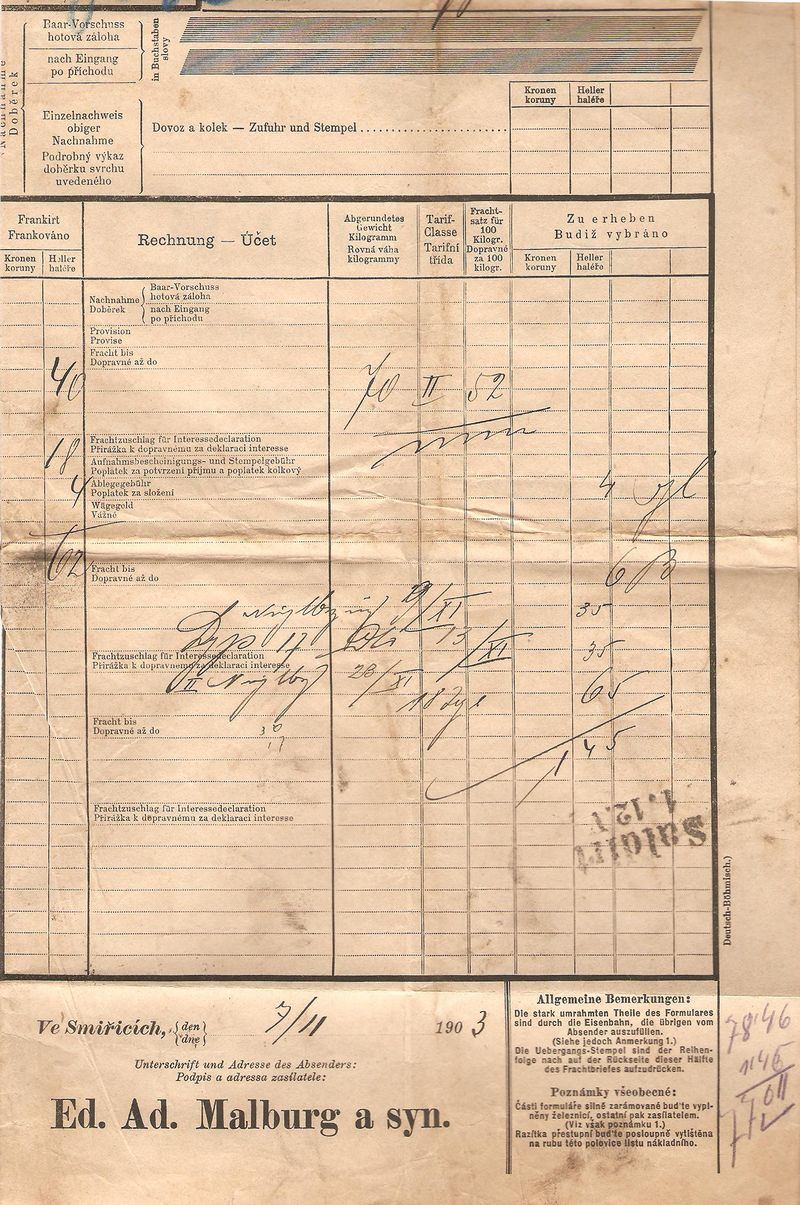 Nachnahme
Doběrek
Baar-Vorschuss
hotová záloha
nach Eingang
po příchodu
in Buchstaben
slovy
Einzelnachweis
obiger
Nachnahme
Podrobný výkaz
doběrku svrchu
uvedeného
Dovoz a kolek — Zufuhr und Stempel
Kronen
koruny
Heller
haléře
Frankirt
Frankováno
Kronen
koruny
Heller
haléře
Rechnung — Účet
Abgerundetes
Gewicht
Kilogramm
Rovná váha
kilogrammy
Tarif-
Classe
Tarifní
třída
Fracht-
satz für
100
Kilogr.
Dopravné
za 100
kilogr.
Zu erheben
Budiž vybráno
Kronen
koruny
Heller
haléře
Nachnahme
Doběrek
Baar-Vorschuss
hotová záloha
nach Eingang
po příchodu
Provision
Provise
Fracht bis
Dopravné až do
40 70 II 52
Frachtzuschlag für Interessedeclaration
Přirážka k dopravnému za deklaraci interesse
18
Aufnahmsbescheinigungs- und Stempelgebühr
Poplatek za potvrzení příjmu a poplatek kolkový
Ablegegebühr
Poplatek za složení
4 4
Wägegeld
Vážné
62
Fracht bis
Dopravné až do
6
9/XI 35
17 13/XI 35
Frachtzuschlag für Interessedeclaration
Přirážka k dopravnému za deklaraci interesse
II 23/XI 65
18
Fracht bis
Dopravné až do
30
17
145
Frachtzuschlag für Interessedeclaration
Přirážka k dopravnému za deklaraci interesse
Saldirt
1.12.
Deutsch-Böhmisch.)
Ve Smiřicích, den
dne
7/11 1903
Unterschrift und Adresse des Absenders:
Podpis a adressa zasílatele:
Ed. Ad. Malburg a syn.
Allgemeine Bemerkungen:
Die stark umrahmten Theile des Formulares
sind durch die Eisenbahn, die übrigen vom
Absender auszufüllen.
(Siehe jedoch Anmerkung 1.)
Die Uebergangs-Stempel sind der Reihen-
folge nach auf der Rückseite dieser Hälfte
des Frachtbriefes aufzudrücken.
Poznámky všeobecné:
Části formuláře silně zarámované buďte vypl-
něny železnicí, ostatní pak zasílatelem.
(Viz však poznámku 1.)
Razítka přestupní buďte posloupně vytištěna
na rubu této polovice listu nákladního.
78'46
1'45
77 01